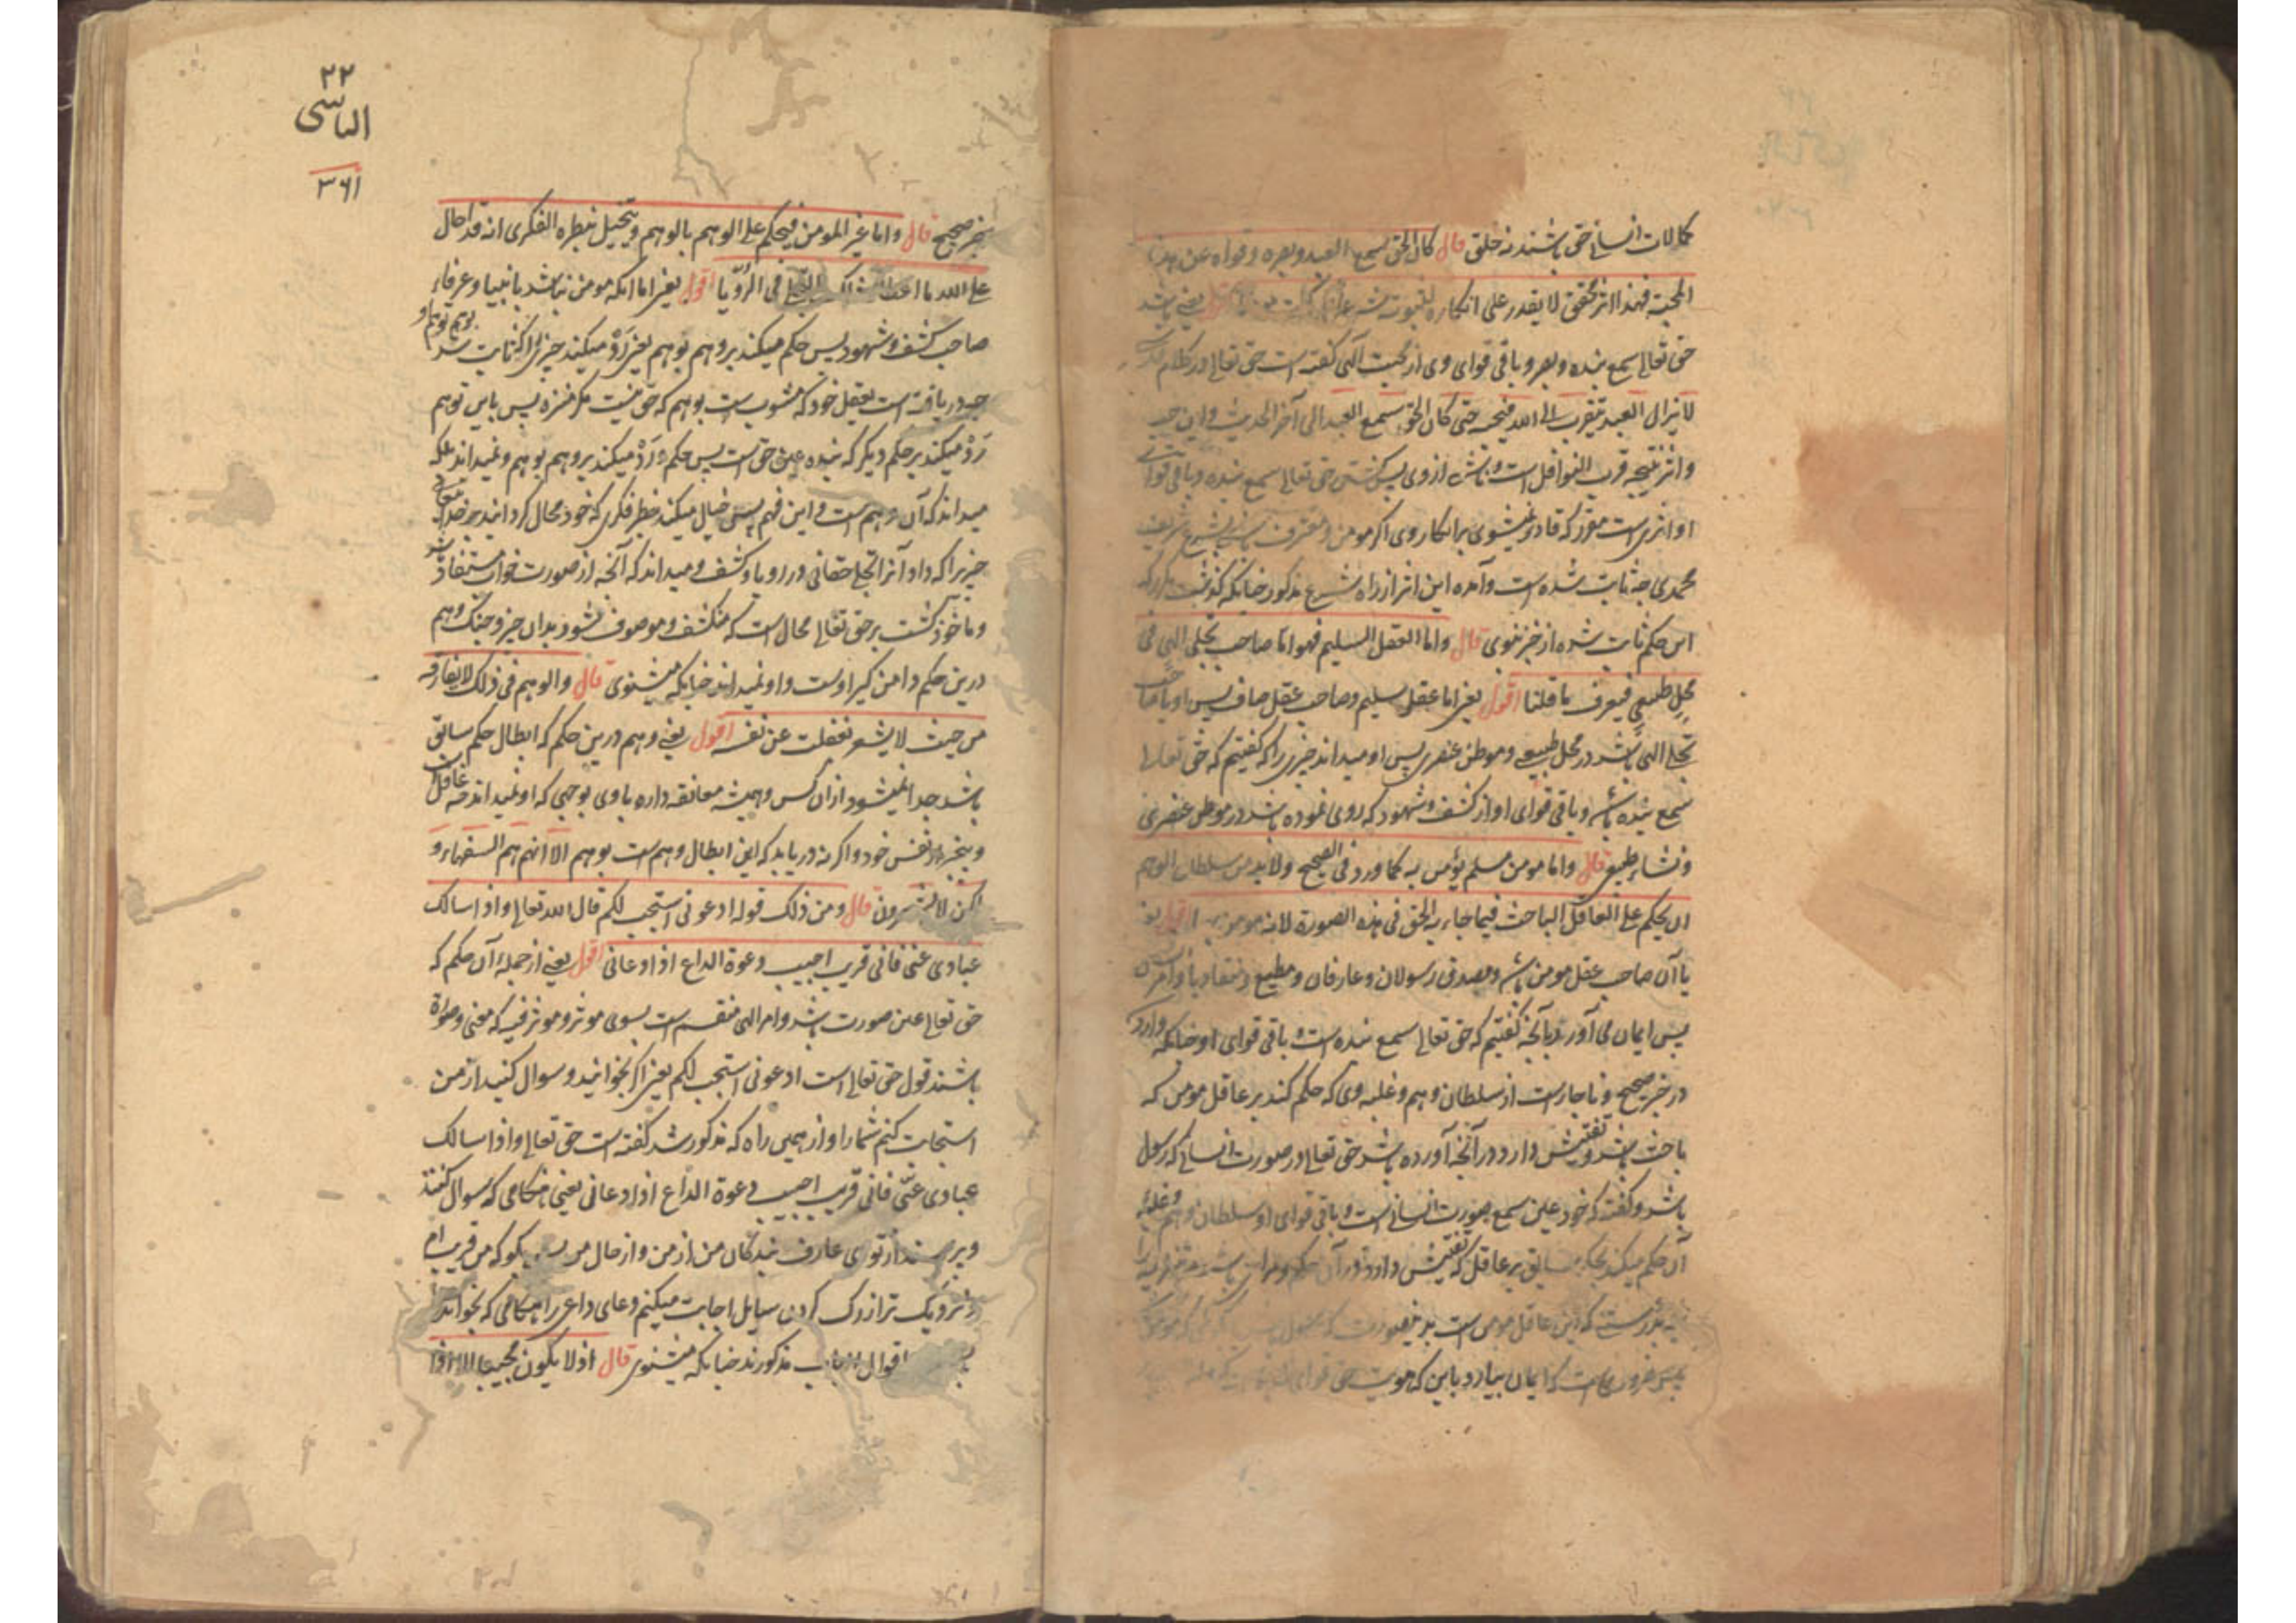 کمالات انسانی حق باشند نه خلق قال کان الحق سمع العبد وبصره وقواه عن هذه
المحبة فهذا اثر محقق لا یقدر علی انکاره لثبوته شرعا یعنی باشد
حق تعالی سمع بنده و بصر و باقی قوای وی از محبت الهی گفته است حق تعالی در کلام
لا یزال العبد یتقرب الی الله فیحبه حتی کان الحق سمع العبد الی آخر الحدیث و این
واثر نتیجه قرب النوافل است از وی پس گشتن حق تعالی سمع بنده و باقی قوای
او اثری است مقرر که قادر نمیشوی بر انکار وی اگر مومن و معترف باشی بشرع شریف
محمدی چه ثابت شده است و آمده این اثر از راه شرع مذکور چنانکه گذشت
این حکم ثابت شده از خبر نبوی قال واما العقل السلیم فهو اما صاحب تجلی الهی فی
مجلی طبیعی فیعرف ما قلنا اقول یعنی اما عقل سلیم و صاحب عقل صاف پس او یا صاحب
تجلی الهی باشد در محل طبیعی و موطن عنصری پس او میداند چیزی را که گفتیم که حق تعالی
سمع بنده باشد و باقی قوای او از کشف و شهود که روی نموده باشد در موطن عنصری
و نشاء طبیعی قال واما مومن مسلم یؤمن به کما ورد فی الصحیح ولا بد من سلطان الوهم
ان یحکم علی العاقل الباحث فیما جاء به الحق فی هذه الصورة لانه مومن بها اقول یعنی
یا آن صاحب عقل مومن باشد و مصدق رسولان و عارفان و مطیع و منقاد باوامر
پس ایمان می آورد بآنچه گفتیم که حق تعالی سمع بنده است و باقی قوای او چنانکه وارد
در خبر صحیح و ناچار است از سلطان وهم و غلبه وی که حکم کند بر عاقل مومن که
باحث باشد و تفتیش دارد در آنچه آورده باشد حق تعالی در صورت انسانی که رسول
باشد و گفته که خود عین سمع صورت انسانی است و باقی قوای او سلطان وهم و غلبهٔ
آن حکم میکند بحکم سابق بر عاقل که تفتیش دارد در آن
که این عاقل مومن است
پس ضروری است که ایمان بیارد باین که هویت حق قوای
۲۲
الیاسی
۳۶۱
بخبر صحیح قال واما غیر المومن فیحکم علی الوهم بالوهم ویتخیل بنظره الفکری انه قد احال
علی الله ما اعطاه ذلک التجلی فی الرؤیا اقول یعنی اما آنکه مومن نباشد بانبیا و عرفاء
صاحب کشف و شهود پس حکم میکند بر وهم بوهم یعنی رد میکند چیزی را که ثابت شد بوهم توهم او
چه دریافته است بعقل خود که مشوب است بوهم که حق نیست مگر منزه پس باین توهم
رد میکند بر حکم دیگر که بنده عین حق است پس حکم و رد میکند بر وهم بوهم و نمیداند بلکه
میداند که آن وهم است و این فهم پس خیال میکند بنظر فکری که خود محال گردانید بر خدای تعالی
چیزیرا که داد آنرا تجلی حقانی در رویا و کشف و میداند که آنچه از صورت خواب مستفاد شد
و ماخوذ گشت بر حق تعالی محال است که منکشف و موصوف شود بدان چیز و حال آنکه وهم
درین حکم دامن گیر اوست و او نمیداند چنانکه میشنوی قال والوهم فی ذلک لا یفارقه
من حیث لا یشعر لغفلته عن نفسه اقول یعنی وهم درین حکم که ابطال حکم سابق
باشد جدا نمیشود ازان کس و همیشه معانقه دارد باوی بوجهی که او نمیداند چه غافل است
و بیخبر از نفس خود و اگر نه دریابد که این ابطال وهم است بوهم الا انهم هم السفهاء و
لکن لا یشعرون قال ومن ذلک قوله ادعونی استجب لکم قال الله تعالی واذا سالک
عبادی عنی فانی قریب اجیب دعوة الداع اذا دعانی اقول یعنی از جمله آن حکم که
حق تعالی عین صورت باشد و امر الهی منقسم است بسوی موثر و موثر فیه که معنی و صورة
باشند قول حق تعالی است ادعونی استجب لکم یعنی اگر بخوانید و سوال کنید از من
استجابت کنم شما را و از همین راه که مذکور شد گفته است حق تعالی واذا سالک
عبادی عنی فانی قریب اجیب دعوة الداع اذا دعانی یعنی هنگامی که سوال کنند
و پرسند از توی عارف بندگان من از من و از حال من پس بگو که من قریب ام
و نزدیک تر از رگ گردن سایل اجابت میکنم دعای داعی را هنگامی که بخواند
اقوال ازین باب مذکورند چنانکه میشنوی قال اذ لا یکون مجیبا الا اذا